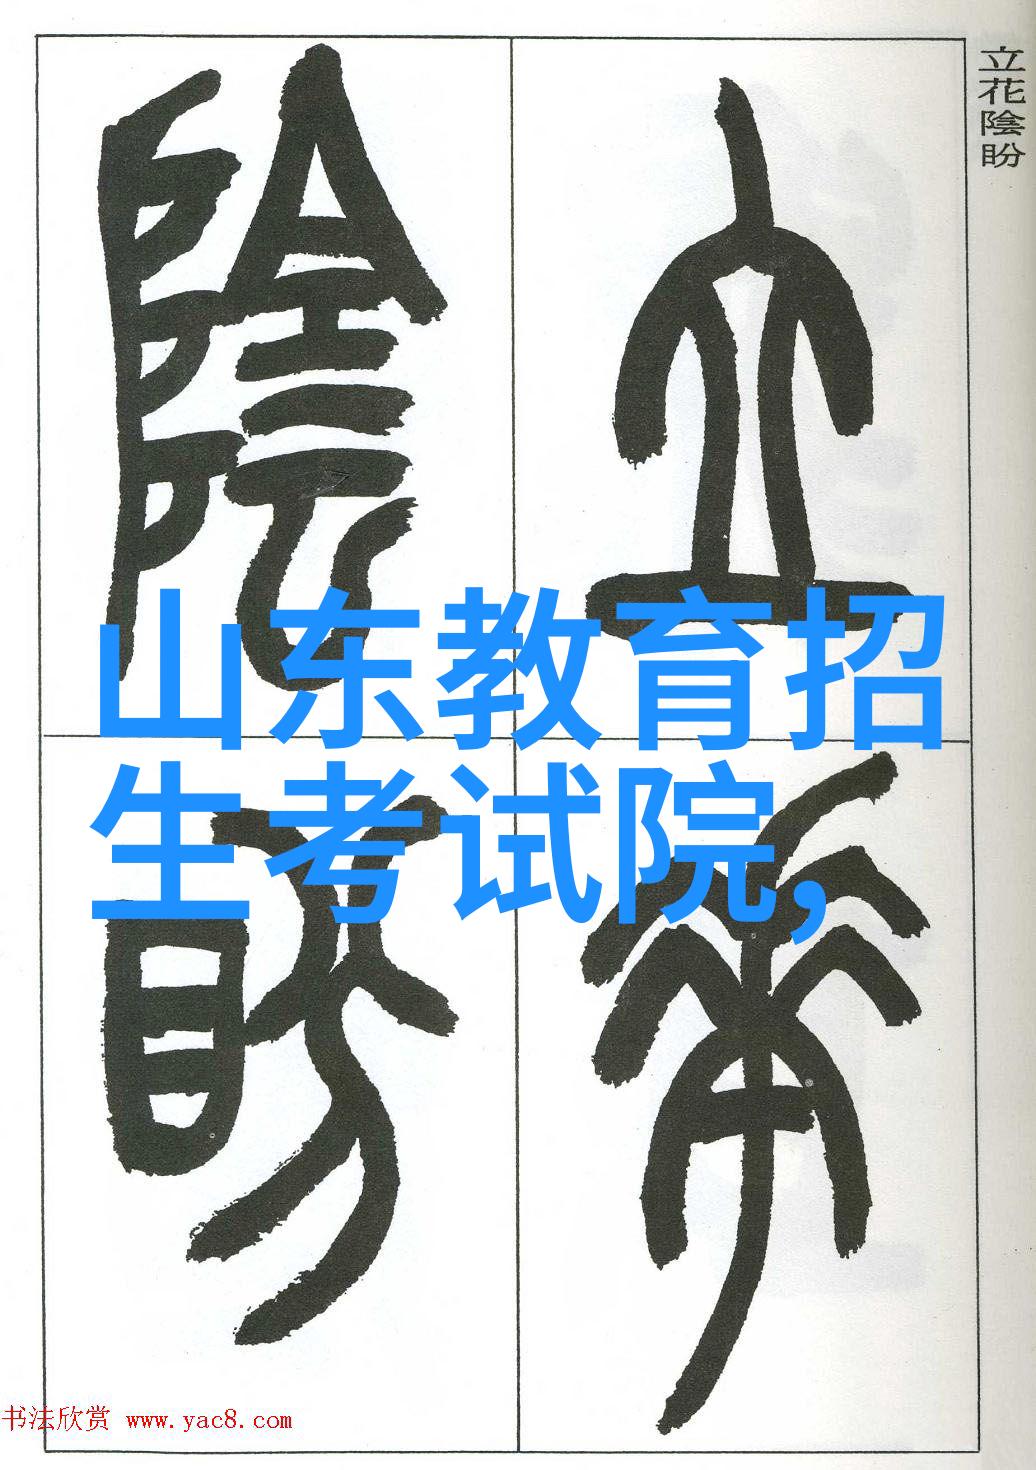 立花陰盼
立花
陰盼
山东教育招
生考试院,
书法欣赏 www.yac8.com